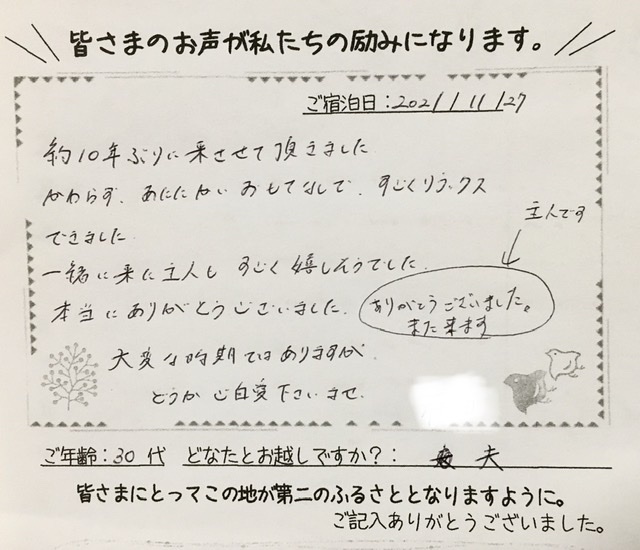 皆さまのお声が私たちの励みになります。
ご宿泊日:2021/11/27
約10年ぶりに来させて頂きました
かわらず、あたたかいおもてなしで、すごくリラックス
できました
主人です
一緒に来た主人もすごく嬉しそうでした。
本当にありがとうございました。
ありがとうございました。
また来ます
大変な時期ではありますが、
どうかご自愛下さいませ。
ご年齢:30代 どなたとお越しですか?: 夫
皆さまにとってこの地が第二のふるさととなりますように。
ご記入ありがとうございました。